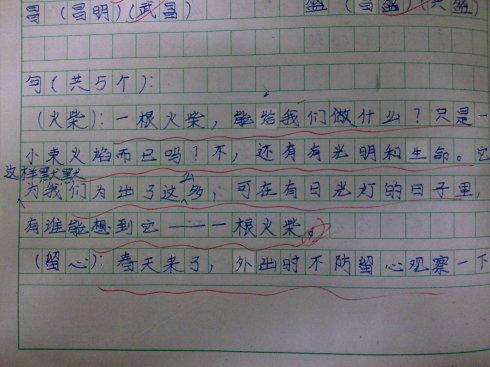 昌（昌明）（武昌）
句（共5个）：
（火柴）：一根火柴，能给我们做什么？只是一
小束火焰而已吗？不，还有有光明和生命。它
这样默默
为我们付出了这么多，可在有日光灯的日子里，
有谁能想到它——一根火柴。
（留心）：春天来了，外出时不防留心观察一下